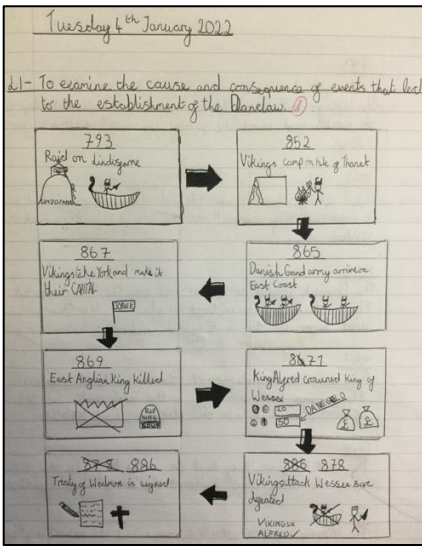 Tuesday 4th January 2022
LI- To examine the cause and consequence of events that led
to the establishment of the Danelaw.
793
Raid on Lindisfarne
LINDISFARNE
852
Vikings camp on Isle of Thanet
865
Danish Grand army arrive on
East Coast
867
Vikings take York and make it
their CAPITAL
JORVIK
869
East Anglian King killed
RIP
KING
871
King Alfred crowned King of
Wessex
DANEGELD
50
£ £
886 878
Vikings attack Wessex
defeated
VIKINGS X
ALFRED ✓
878 886
Treaty of Wedmore is signed